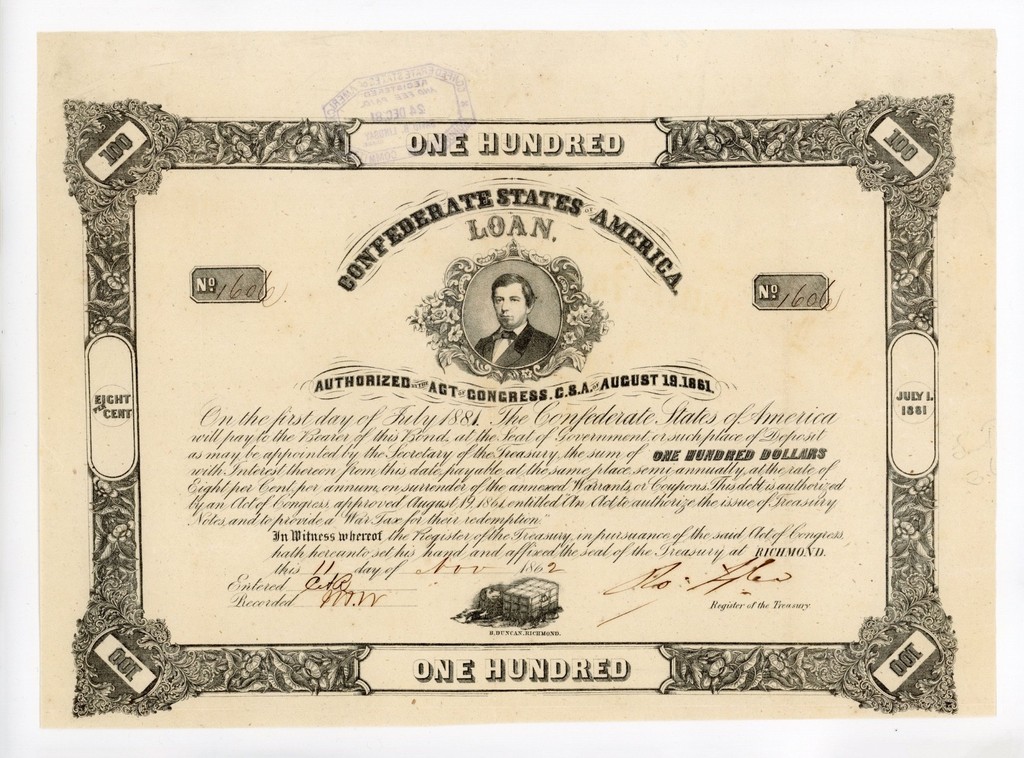 CONFEDERATE STATES OF AMERICA
REGISTERED
24 DEC 81
100 ONE HUNDRED 100
CONFEDERATE STATES OF AMERICA.
LOAN.
No 1606 No 1606
AUTHORIZED BY THE ACT OF CONGRESS. C.S.A. OF AUGUST 19. 1861.
EIGHT PER CENT
JULY 1. 1881
On the first day of July 1881. The Confederate States of America
will pay to the Bearer of this Bond, at the Seat of Government, or such place of Deposit
as may be appointed by the Secretary of the Treasury, the sum of ONE HUNDRED DOLLARS
with Interest thereon from this date, payable at the same place semi-annually, at the rate of
Eight per Cent. per annum, on surrender of the annexed Warrants, or Coupons. This debt is authorized
by an Act of Congress, approved August 19, 1861, entitled "An Act to authorize the issue of Treasury
Notes, and to provide a War Tax for their redemption."
In Witness whereof the Register of the Treasury, in pursuance of the said Act of Congress,
hath hereunto set his hand and affixed the seal of the Treasury at RICHMOND.
this 11 day of Nov 1862
Entered
Recorded
Register of the Treasury
B. DUNCAN, RICHMOND.
100 ONE HUNDRED 100